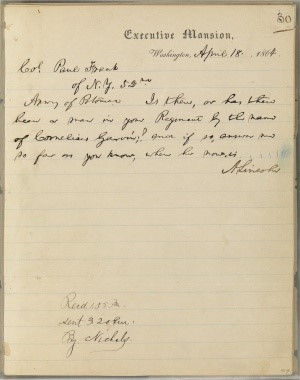 80
Executive Mansion,
Washington, April 18. 1864
Col. Paul Frank
of N.Y. 52nd
Army of Potomac Is there, or has there
been a man in your Regiment by the name
of Cornelius Garvin? and if so, answer me
so far as you know, where he now is
A. Lincoln
sent 3 20 P.m.
By Nichols